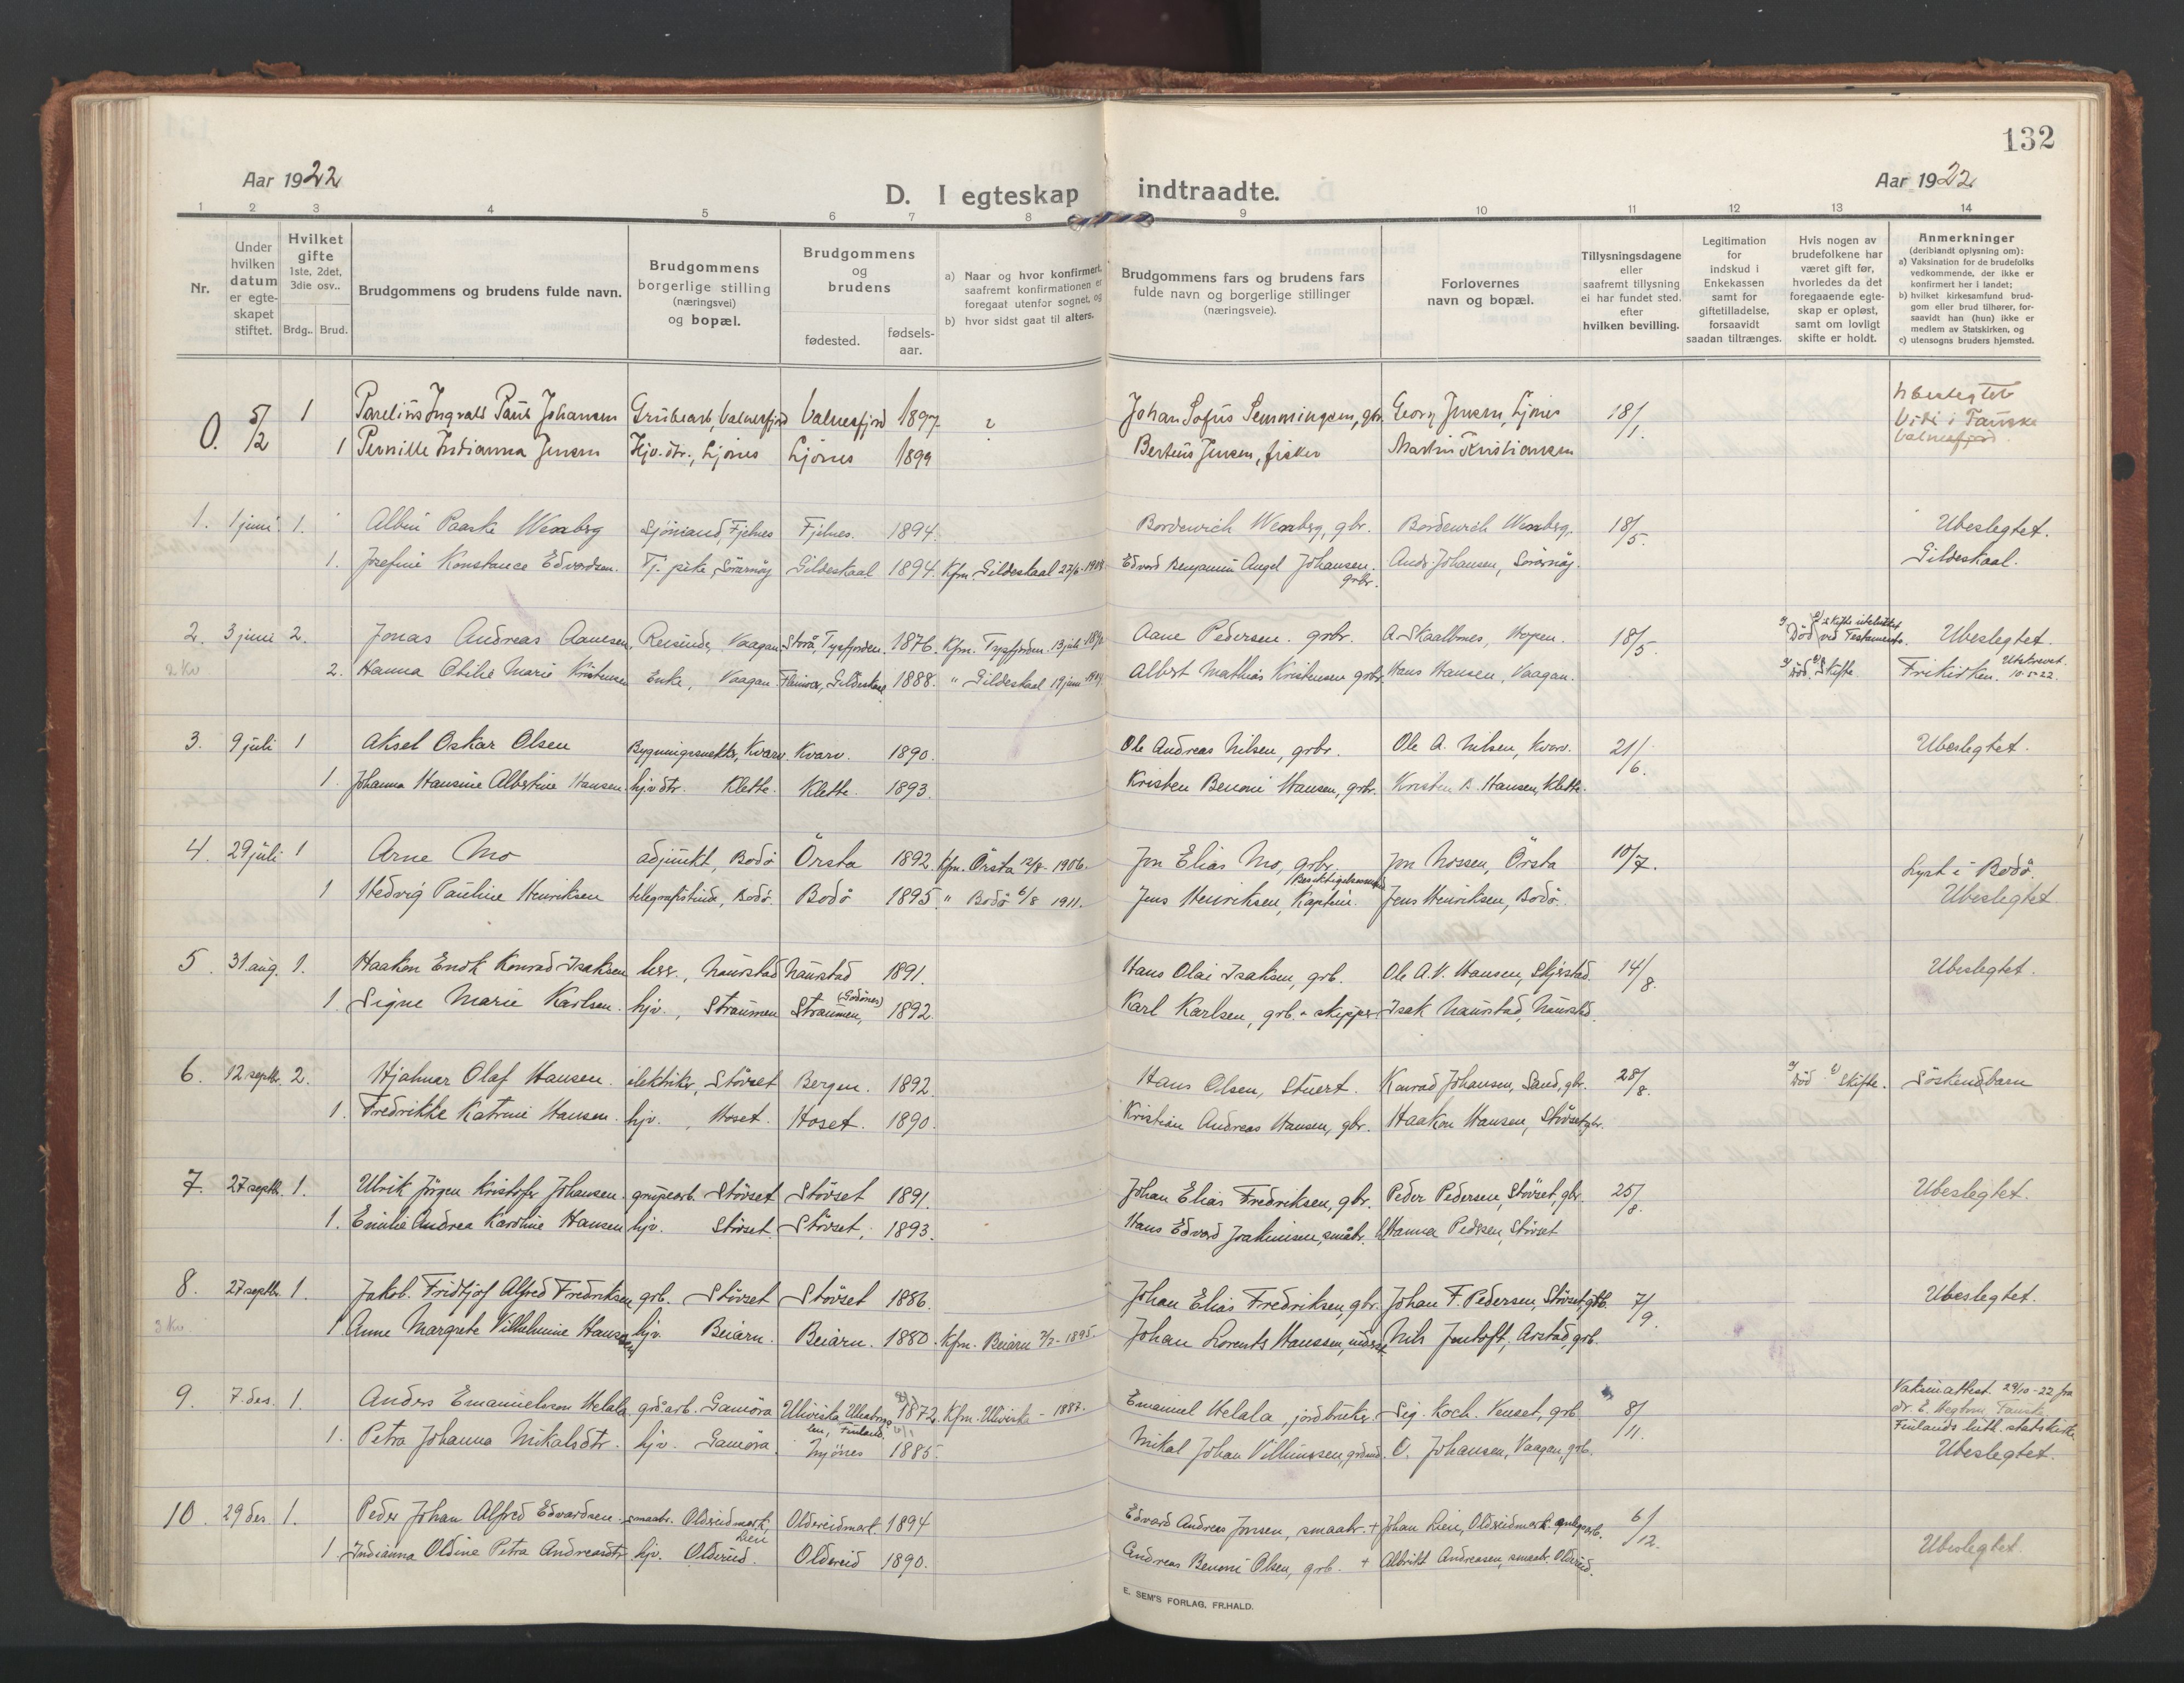 132
Aar 1922
Aar 1922
D. I egteskap indtraadte.
1 2 3 4 5 6 7 8 9 10 11 12 13 14
Nr.
Under hvilken datum er egteskapet stiftet.
Hvilket gifte 1ste, 2det, 3die osv..
Brdg.. Brud.
Brudgommens og brudens fulde navn.
Brudgommens borgerlige stilling (næringsvei) og bopæl.
Brudgommens og brudens
fødested.
fødsels-aar.
a) Naar og hvor konfirmert, saafremt konfirmationen er foregaat utenfor sognet, og
b) hvor sidst gaat til alters.
Brudgommens fars og brudens fars fulde navn og borgerlige stillinger (næringsveie).
Forlovernes navn og bopæl.
Tillysningsdagene eller saafremt tillysning ei har fundet sted. efter hvilken bevilling.
Legitimation for indskud i Enkekassen samt for giftetilladelse, forsaavidt saadan tiltrænges.
Hvis nogen av brudefolkene har været gift før, hvorledes da det foregaaende egteskap er opløst, samt om lovligt skifte er holdt.
Anmerkninger (deriblandt oplysning om):
a) Vaksination for de brudefolks vedkommende, der ikke er konfirmert her i landet;
b) hvilket kirkesamfund brudgom eller brud tilhører, forsaavidt han (hun) ikke er medlem av Statskirken, og
c) utensogns bruders hjemsted.
0. 5/2 1 Parelius Ingvald Paul Johansen Grubearb, Valnesfjord Valnesfjord 1897 ? Johan Sofus Semmingsen, gbr. Georg Jensen, Ljønes 18/1. Ubeslegtet
Viet i Fauske Valnesfjord.
1 Pernille Indianna Jensen Hjv. dtr., Ljønes Ljønes 1899 Berteus Jensen, fisker Martin Kristiansen
1. 1 juni 1. Albin Paaske Wenberg Sjömand, Fjelnes Fjelnes. 1894. Bordenrich Wenberg, gbr. Bordenrich Wenberg. 18/5. Ubeslegtet.
1. Josefine Konstance Edvardsen. Tj. pike, Sörarnöy Gildeskaal 1894. Kfm. Gildeskaal 27/6-1908. Edvard Benjamin Angel Johansen. grbr. Andr. Johansen, Sörarnöy. Gildeskaal.
2. 3 juni 2. Jonas Andreas Aanesen, Reisende, Vaagan. Storå, Tysfjorden. 1876. Kfm. Tysfjorden. 13 juli Aane Pedersen. grbr. A. Skaalbones, Hopen. 18/5. Död ved Testamente. Ubeslegtet.
2 Kv 2. Hanna Otilie Marie Kristensen Enke, Vaagan. Fleinvær, Gildeskaal 1888. " Gildeskaal 19 juni Albert Mathias Kristensen grbr. Hans Hansen, Vaagan. Död. Skifte. Frikirken. Utskrevet. 10-5-22.
3. 9 juli 1 Aksel Oskar Olsen Bygningssnekker, Kvarv. Kvarv. 1890. Ole Andreas Nilsen, grbr. Ole A. Nilsen, Kvarv. 21/6. Ubeslegtet.
1. Johanna Hansine Albertine Hansen. hjv dtr. Klette. Klette. 1893. Kristen Benoni Hansen, grbr. Kristen B. Hansen, Klette.
4. 29 juli 1 Arne Mo adjunkt, Bodö Örsta 1892. Kfm. Örsta 12/8-1906. Jon Elias Mo, grbr. Jon Mossen, Örsta 10/7. Lyst i Bodö.
1 Hedvig Pauline Henriksen telegrafistinde, Bodö. Bodö 1895. " Bodö 6/8 1911. Jens Henriksen, Kaptein. Jens Henriksen, Bodö. Ubeslegtet.
5. 31. aug. 1. Haakon Endk Konrad Isaksen lærer, Naurstad Naurstad 1891. Hans Olai Isaksen, grb. Ole A. V. Hansen, Skjerstad. 14/8. Ubeslegtet.
1. Signe Marie Karlsen. hjv., Straumen Straumen, (Godönes) 1892. Karl Karlsen, grb. & skipper. Isak Naurstad, Naurstad.
6. 12 septbr. 2. Hjalmar Olaf Hansen. elektriker, Stövset Bergen. 1892. Hans Olsen, Stuert. Konrad Johansen, Sand, gbr. 28/8. Död Skifte. Söskendbarn
1. Fredrikke Katrine Hansen. hjv., Hoset. Hoset. 1890. Kristian Andreas Hansen, gbr. Haakon Hansen, Stövset, gbr.
7. 27 septbr. 1. Ulrik Jörgen Kristofer Johansen. grubearb. Stövset Stövset 1891. Johan Elias Fredriksen, gbr. Peder Pedersen, Stövset, gbr. 25/8. Ubeslegtet.
1. Emilie Andrea Karoline Hansen hjv. Stövset. Stövset. 1893. Hans Edvard Joakimsen, småbr. Hanna Pedersen, Stövset
8. 27 septbr. 1. Jakob Fridtjof Alfred Fredriksen grb. Stövset Stövset 1886. Johan Elias Fredriksen, gbr. Johan F. Pedersen, Stövset, grb. 7/9. Ubeslegtet.
3 Kv 1 Anne Margrete Vilhelmine Hansen hjv. Beiarn. Beiarn. 1880. Kfm. Beiarn 7/7-1895. Johan Lorents Hanssen, inderst Nils Jentoft, Arstad, grb.
9. 7. des. 1. Anders Emanuelsson Helala grd.arb. Gamöra Uleåborgs len, Finland. 1872. Kfm. - 1887. Emanuel Helala, jordbruker. Sig. Koch. Venset, grb. 8/11. Vaksinattest. 29/10-22 fra dr. E. Hegtun, Fauske. Finlands luth. statskirke
1. Petra Johanna Mikalsdtr. hjv. Gamöra. Mjönes 1885. Mikal Johan Villumsen, grdmd. O. Johansen, Vaagan, grb. Ubeslegtet.
10. 29 des. 1. Peder Johan Alfred Edvardsen. smaabr. Oldereidmark, Lien Oldereidmark. 1894 Edvard Andreas Jonsen, smaabr. + Johan Lien, Oldereidmark. 6/12.
1. Indianna Oldine Petra Andreasdtr. hjv. Oldereid. Oldereid 1890. Andreas Benoni Olsen, grb. + Albrikt Andreasen, smaabr. Oldereid. Ubeslegtet.
E. SEM'S FORLAG, FR.HALD.